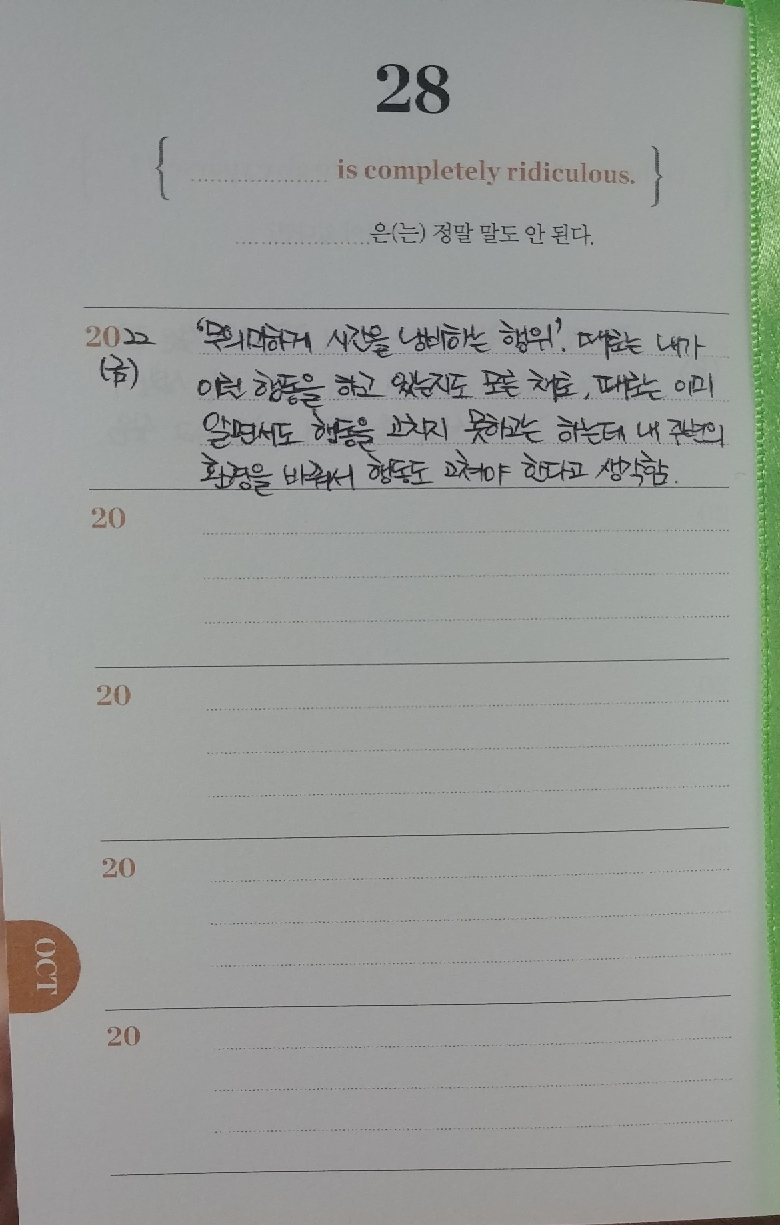 28
{ .................... is completely ridiculous. }
....................은(는) 정말 말도 안 된다.
2022 '무의미하게 시간을 낭비하는 행위'. 때로는 내가
(금) 이런 행동을 하고 있는지도 모른 채로, 때로는 이미
알면서도 행동을 고치지 못하고는 하는데 내 주변의
환경을 바꿔서 행동도 고쳐야 한다고 생각함.
20
20
20
OCT
20